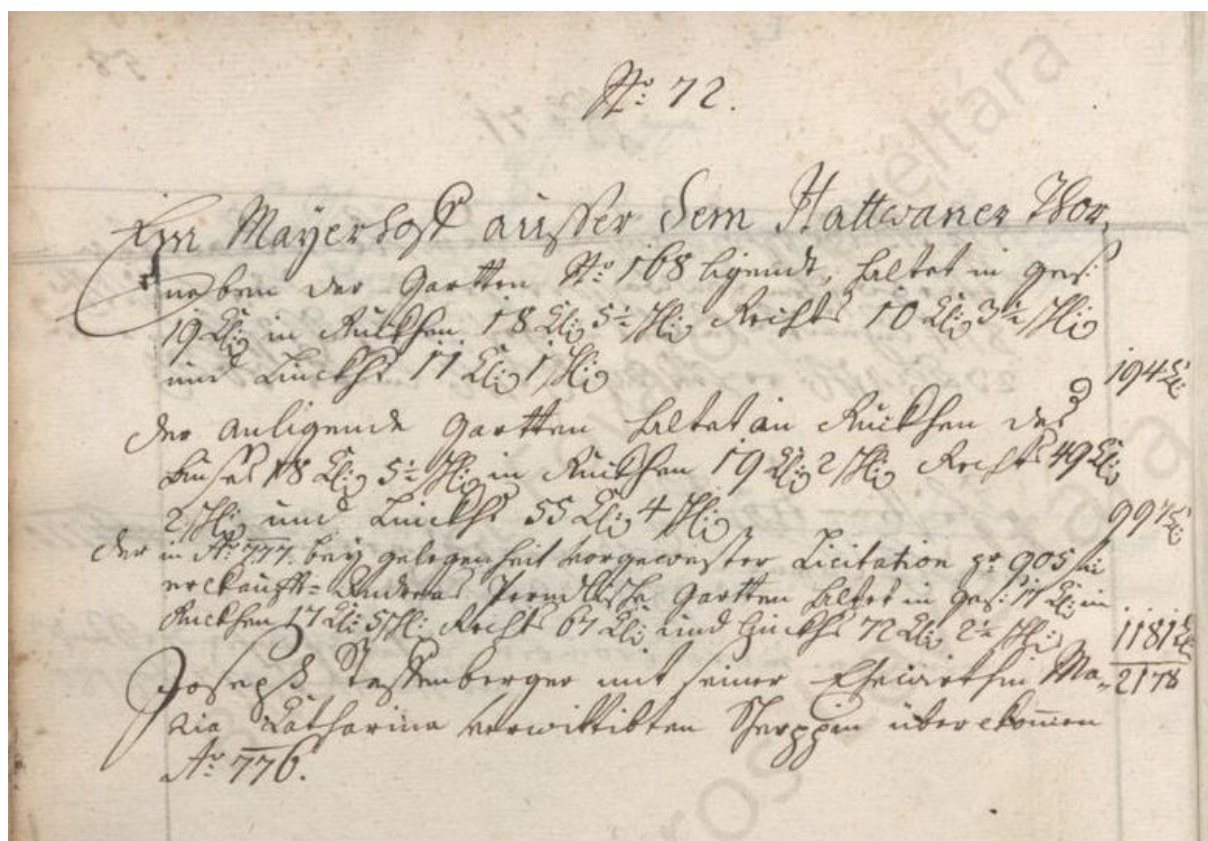 No: 72.
Ein Mayerhoff ausser dem Hattwaner Thor,
neben der Gartten No: 168 ligendt, haltet in ges:
19 Kl: in Ruckhen 18 Kl: 5½ Sch: Rechts 10 Kl: 3½ Sch:
und Linckhs 11 Kl: 1 Sch: 194 Kl:
der anligende Gartten haltet in Ruckhen des
hauses 18 Kl: 5½ Sch: in Ruckhen 19 Kl: 2 Sch: Rechts 49 Kl:
2 Sch: und Linckhs 55 Kl: 4 Sch: 997 Kl:
der in Ao: 777. bey gelegenheit vorgewester Licitation pr 905
erckauffte Andreas Gartten haltet in ges: 17 Kl: in
Ruckhen 17 Kl: 5 Sch: Rechts 67 Kl: und Linckhs 72 Kl: 2½ Sch: 1181 Kl:
Joseph Stessenberger mit seiner Ehewirthin Ma- 2178
ria Catharina verwittibten überckomen
Ao: 776.